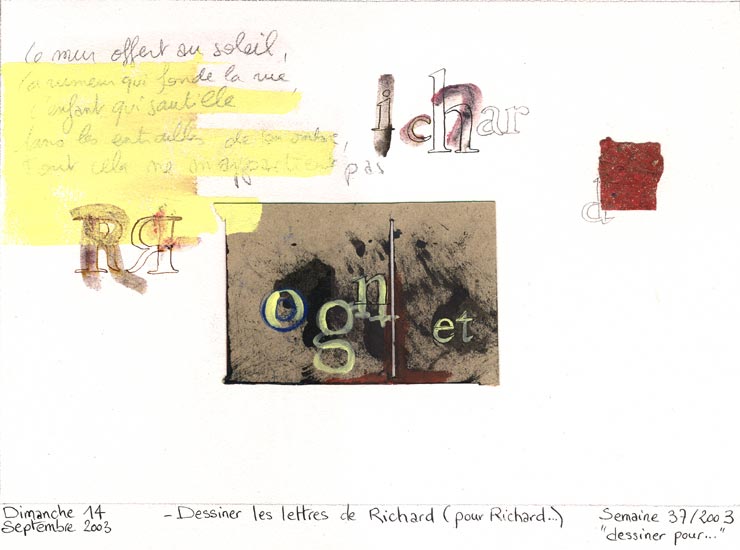 Le mur offert au soleil,
la rumeur qui fonde la rue,
l'enfant qui sautille
dans les entrailles de ton ombre,
tout cela ne m'appartient pas
ichar
d
RR
ognet
Dimanche 14
Septembre 2003
- Dessiner les lettres de Richard (pour Richard...)
Semaine 37/2003
"dessiner pour..."